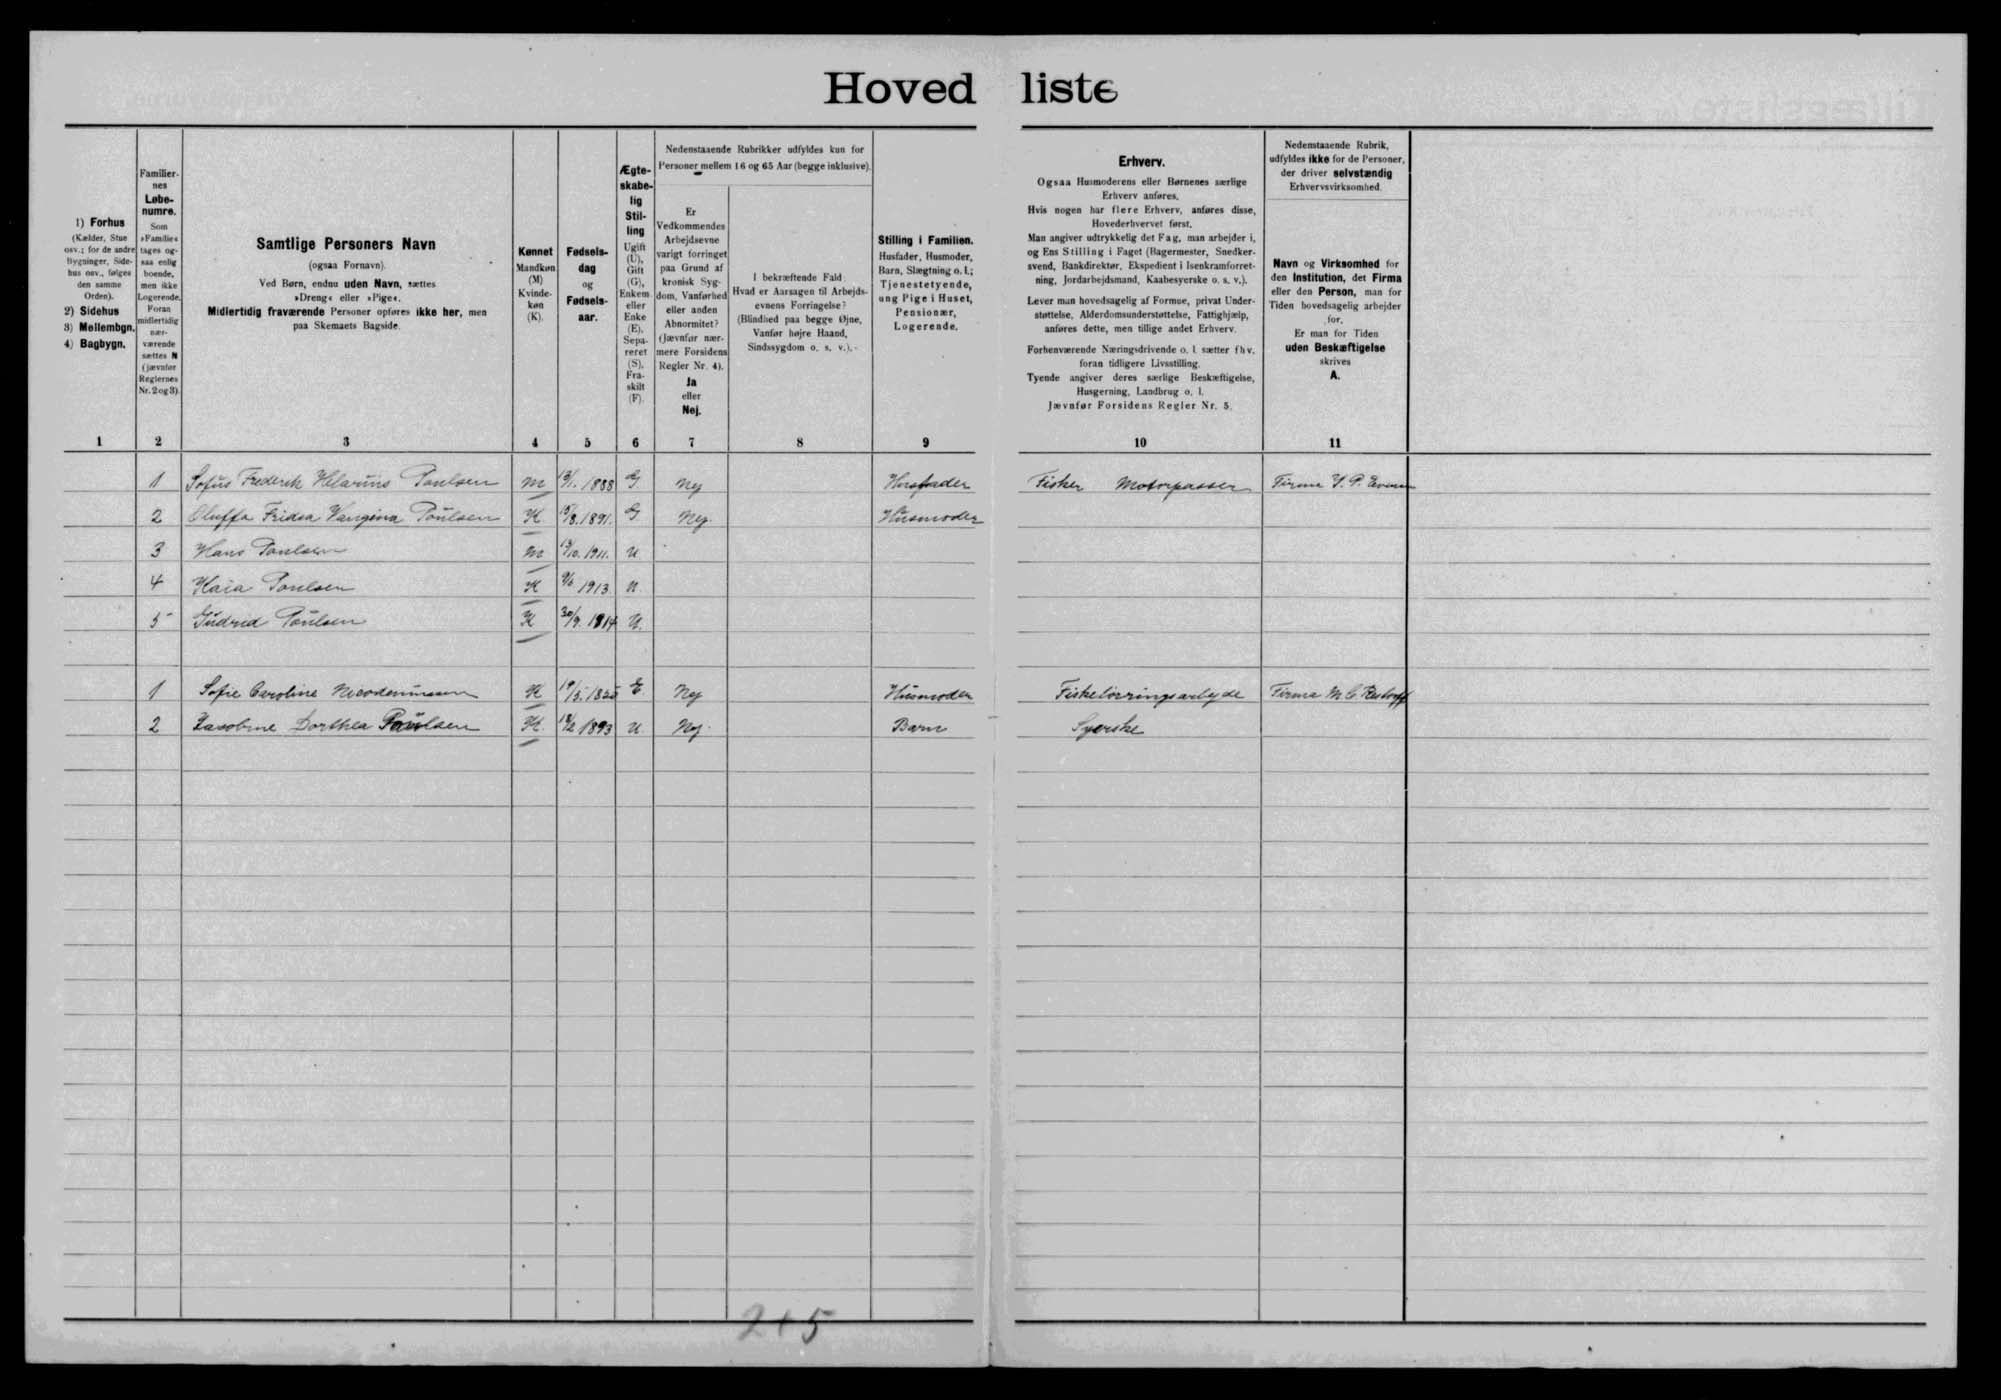 Hovedliste
1) Forhus
(Kælder, Stue
osv.; for de andre
Bygninger, Side-
hus osv., følges
den samme
Orden).
2) Sidehus
3) Mellembgn.
4) Bagbygn.
Familier-
nes
Løbe-
numre.
Som
»Familie«
tages og-
saa enlig
boende,
men ikke
Logerende.
Foran
midlertidig
nær-
værende
sættes N
(jævnfør
Reglernes
Nr. 2 og 3).
Samtlige Personers Navn
(ogsaa Fornavn).
Ved Børn, endnu uden Navn, sættes
»Dreng« eller »Pige«.
Midlertidig fraværende Personer opføres ikke her, men
paa Skemaets Bagside.
Kønnet
Mandkøn
(M)
Kvinde-
køn
(K).
Fødsels-
dag
og
Fødsels-
aar.
Ægte-
skabe-
lig
Stil-
ling
Ugift
(U),
Gift
(G),
Enkem.
eller
Enke
(E),
Sepa-
reret
(S),
Fra-
skilt
(F).
Nedenstaaende Rubrikker udfyldes kun for
Personer mellem 16 og 65 Aar (begge inklusive).
Er
Vedkommendes
Arbejdsevne
varigt forringet
paa Grund af
kronisk Syg-
dom, Vanførhed
eller anden
Abnormitet?
(Jævnfør nær-
mere Forsidens
Regler Nr. 4).
Ja
eller
Nej.
I bekræftende Fald:
Hvad er Aarsagen til Arbejds-
evnens Forringelse?
(Blindhed paa begge Øjne,
Vanfør højre Haand,
Sindssygdom o. s. v.).
Stilling i Familien.
Husfader, Husmoder,
Barn, Slægtning o. l.;
Tjenestetyende,
ung Pige i Huset,
Pensionær,
Logerende.
Erhverv.
Ogsaa Husmoderens eller Børnenes særlige
Erhverv anføres.
Hvis nogen har flere Erhverv, anføres disse,
Hovederhvervet først.
Man angiver udtrykkelig det Fag, man arbejder i,
og Ens Stilling i Faget (Bagermester, Snedker-
svend, Bankdirektør, Ekspedient i Isenkramforret-
ning, Jordarbejdsmand, Kaabesyerske o. s. v.).
Lever man hovedsagelig af Formue, privat Under-
støttelse, Alderdomsunderstøttelse, Fattighjælp,
anføres dette, men tillige andet Erhverv.
Forhenværende Næringsdrivende o. l. sætter fhv.
foran tidligere Livsstilling.
Tyende angiver deres særlige Beskæftigelse,
Husgerning, Landbrug o. l.
Jævnfør Forsidens Regler Nr. 5.
Nedenstaaende Rubrik,
udfyldes ikke for de Personer,
der driver selvstændig
Erhvervsvirksomhed.
Navn og Virksomhed for
den Institution, det Firma
eller den Person, man for
Tiden hovedsagelig arbejder
for.
Er man for Tiden
uden Beskæftigelse
skrives
A.
1 2 3 4 5 6 7 8 9 10 11
1 Sofus Frederik Poulsen M 1888 G Nej Husfader Fisker Motorpasser Firma
2 Oluffa Fridea Poulsen K. 15/8. 1891. G Nej. Husmoder
3 Hans Poulsen M 1911. U.
4 Kaia Poulsen K 9/6 1913. U.
5 Gudrid Poulsen K 30/9. 1914 U.
1 Sofie Caroline Nicodemussen K E. Nej Husmoder Fisketörringsarbejde Firma M. C. Restorff
2 Jacobine Dorthea Poulsen K. 1893 U. Nej. Barn Syerske
2+5